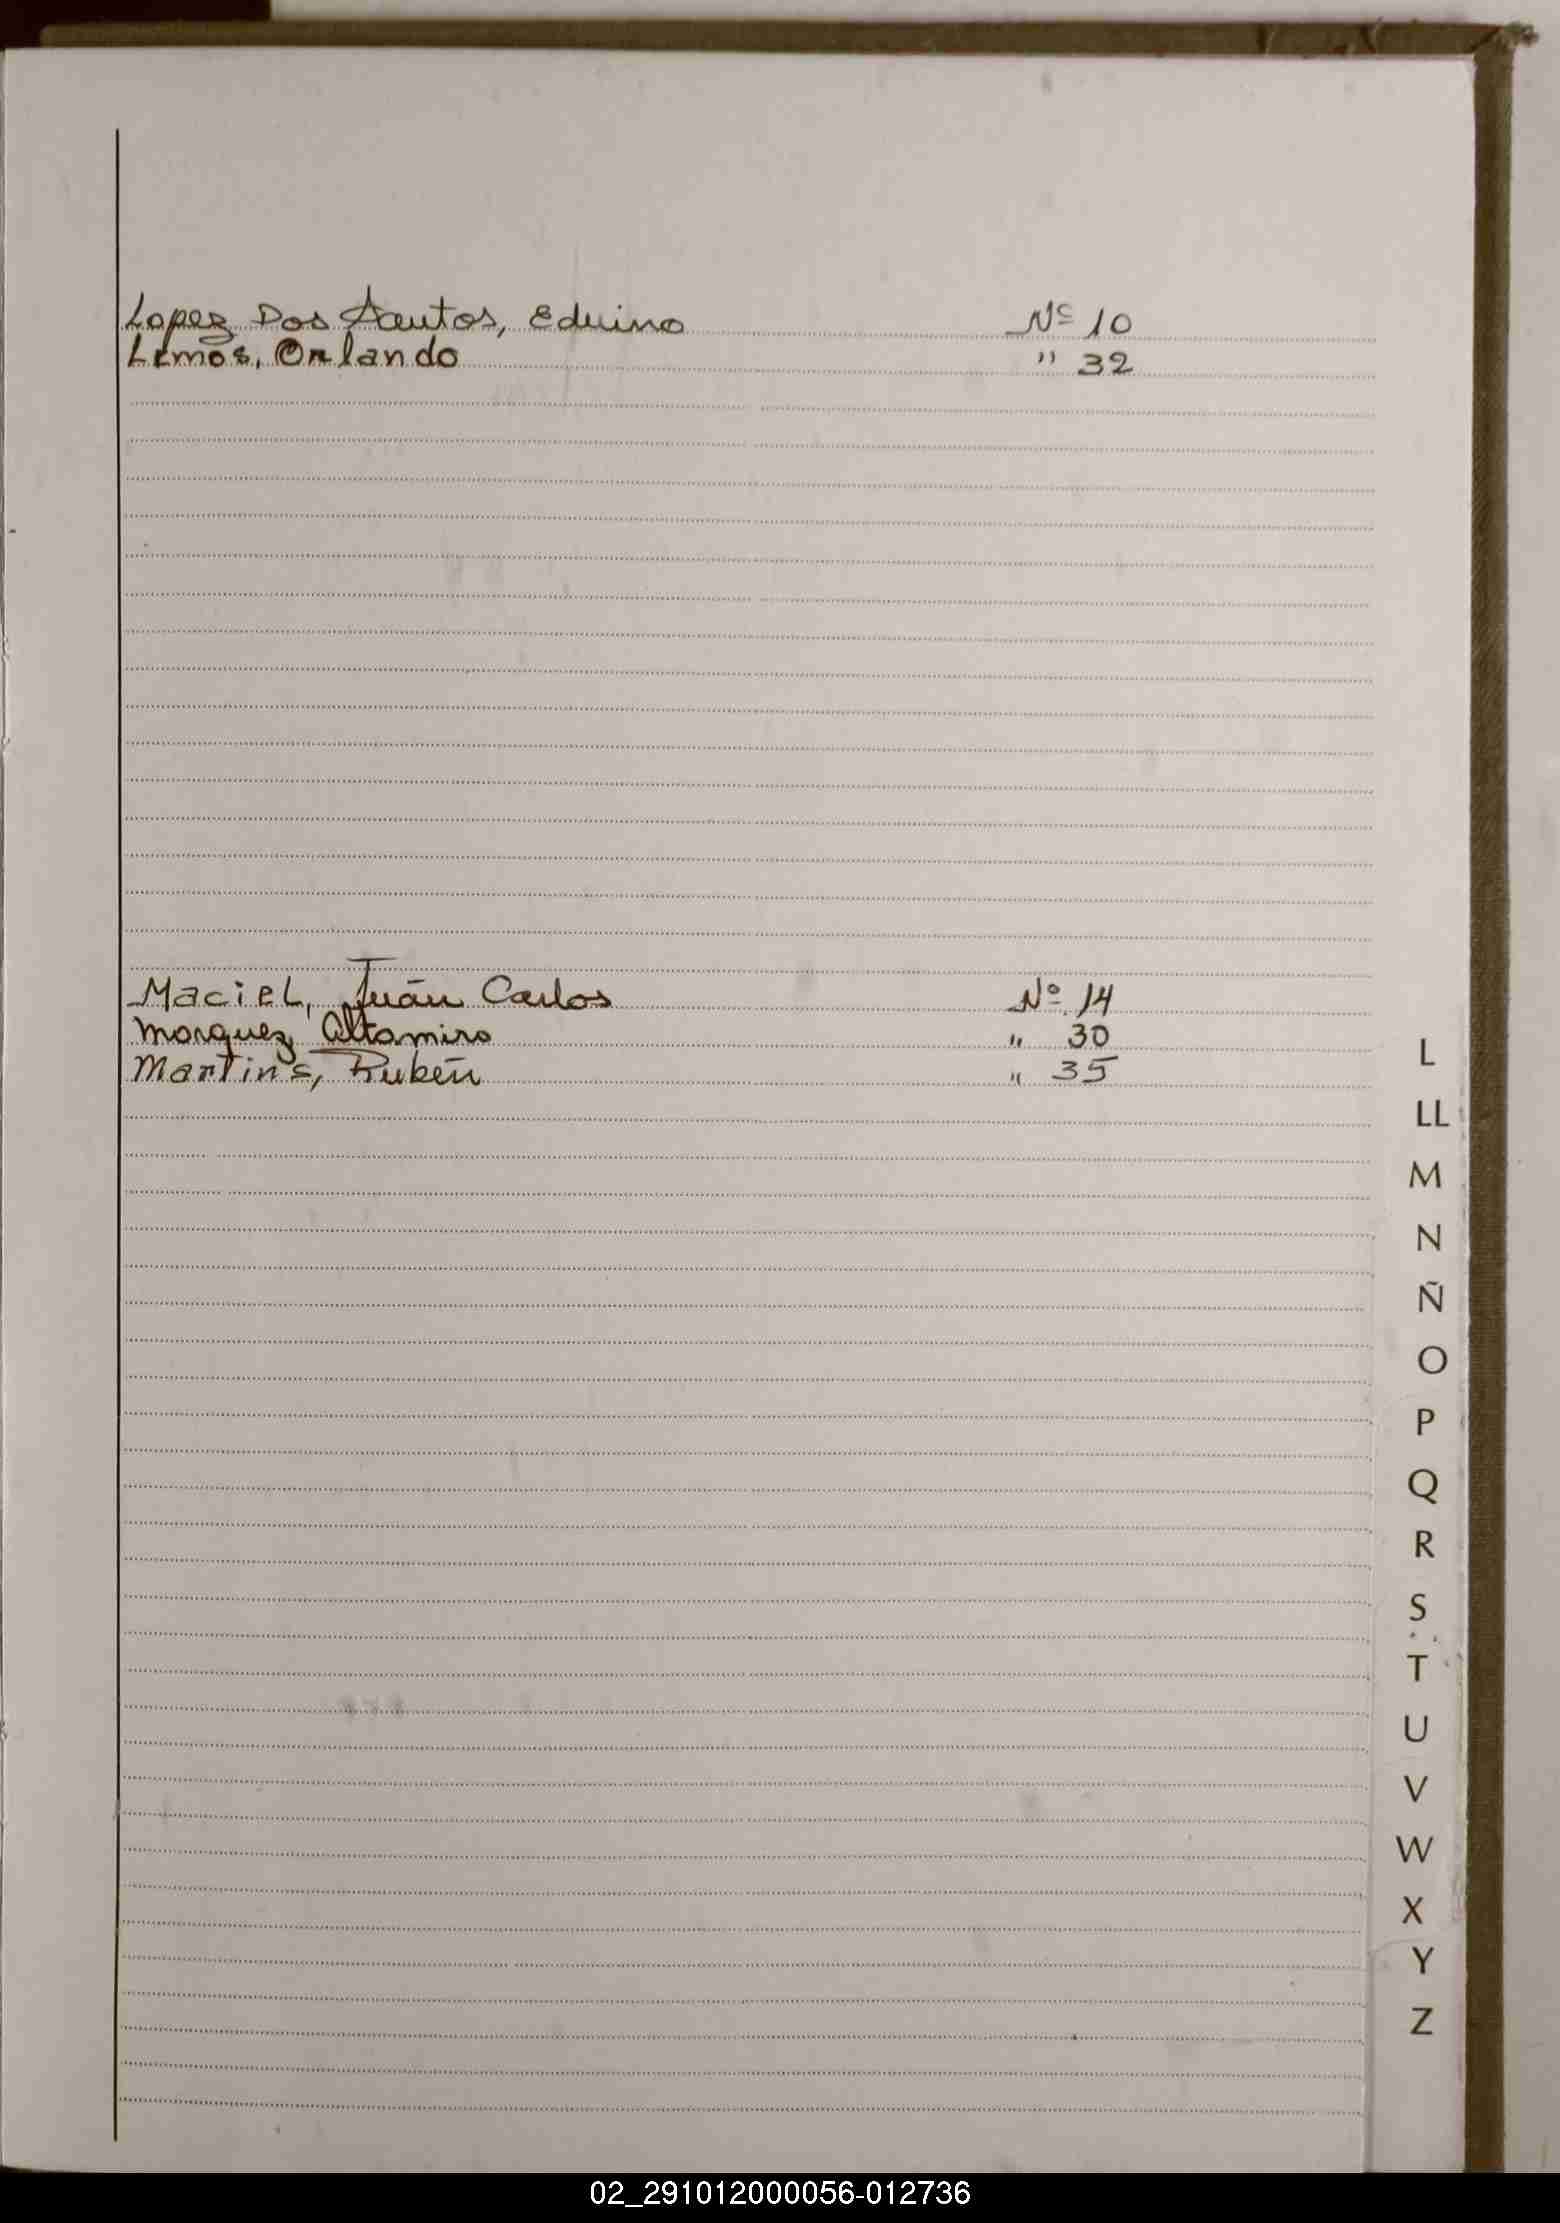 Lopez Dos Santos, Eduino Nº 10
Lemos, Orlando " 32
Maciel, Juán Carlos Nº 14
Morquez, Altamiro " 30
Martins, Rubén " 35
L
LL
M
N
Ñ
O
P
Q
R
S
T
U
V
W
X
Y
Z
02_291012000056-012736